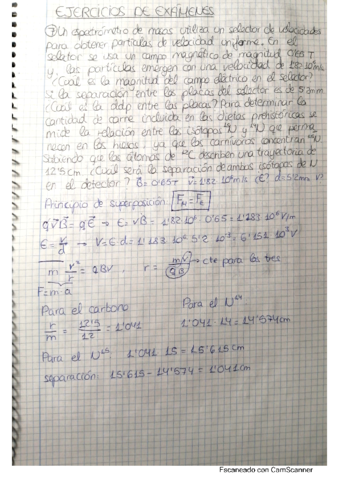 EJERCICIOS DE EXÁMENES
Un espectrómetro de masas utiliza un selector de velocidades
para obtener partículas de velocidad uniforme. En el
selector se usa un campo magnético de magnitud 0'65 T
y las partículas emergen con una velocidad de
¿Cuál es la magnitud del campo eléctrico en el selector?
Si la separación entre las placas del selector es de 5'2mm
¿Cuál es la ddp entre las placas? Para determinar la
cantidad de carne incluida en las dietas prehistóricas se
mide la relación entre los isótopos ¹⁵N y ¹⁴N que perma-
necen en los huesos, ya que los carnívoros concentran ¹⁵N
Sabiendo que los átomos de ¹²C describen una trayectoria de
12'5 cm. ¿Cuál será la separación de ambos isótopos de N
en el detector? B=0'65T v=1'82·10⁶ m/s ¿E? d=5'2mm V?
Principio de superposición
qv̄B̄ = qĒ → E = vB = 1'82·10⁶ · 0'65 = 1'183·10⁶ V/m
E = V/d → V = E·d = 1'183·10⁶ · 5'2·10⁻³ = 6'151·10³ V
m v²/r = QBV, r = mV/QB → cte para los tres
F = m·a
Para el carbono Para el N¹⁴
r/m = 12'5/12 = 1'041 1'041·14 = 14'574cm
Para el N¹⁵ 1'041·15 = 15'615cm
separación: 15'615 - 14'574 = 1'041cm
Escaneado con CamScanner